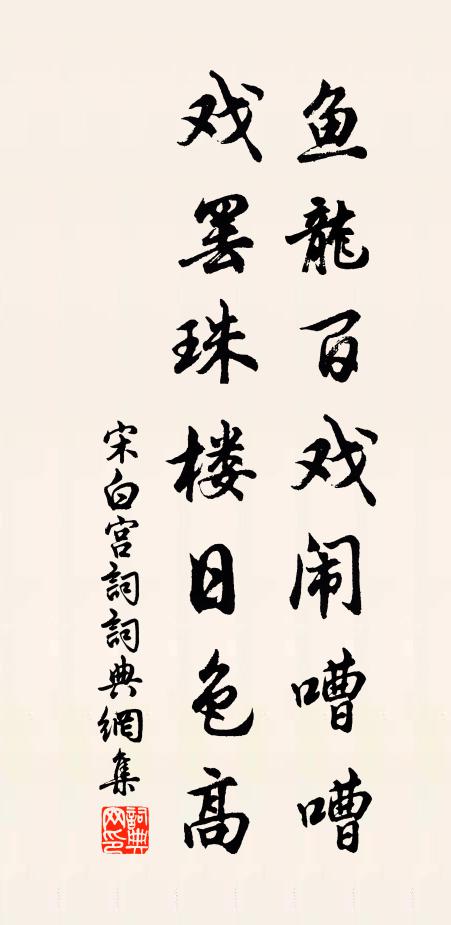 鱼龍百戏闹嘈嘈
戏罢珠楼日色高
宋白宫詞詞典網集
詞典網印